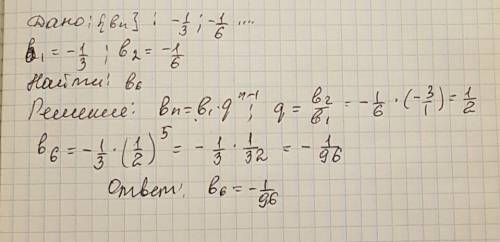 Дано: {bn} : -1/3 ; -1/6 ....
b1 = -1/3 ; b2 = -1/6
Найти: b6
Решение: bn = b1 · q^(n-1) ; q = b2/b1 = -1/6 · (-3/1) = 1/2
b6 = -1/3 · (1/2)^5 = -1/3 · 1/32 = -1/96
Ответ: b6 = -1/96